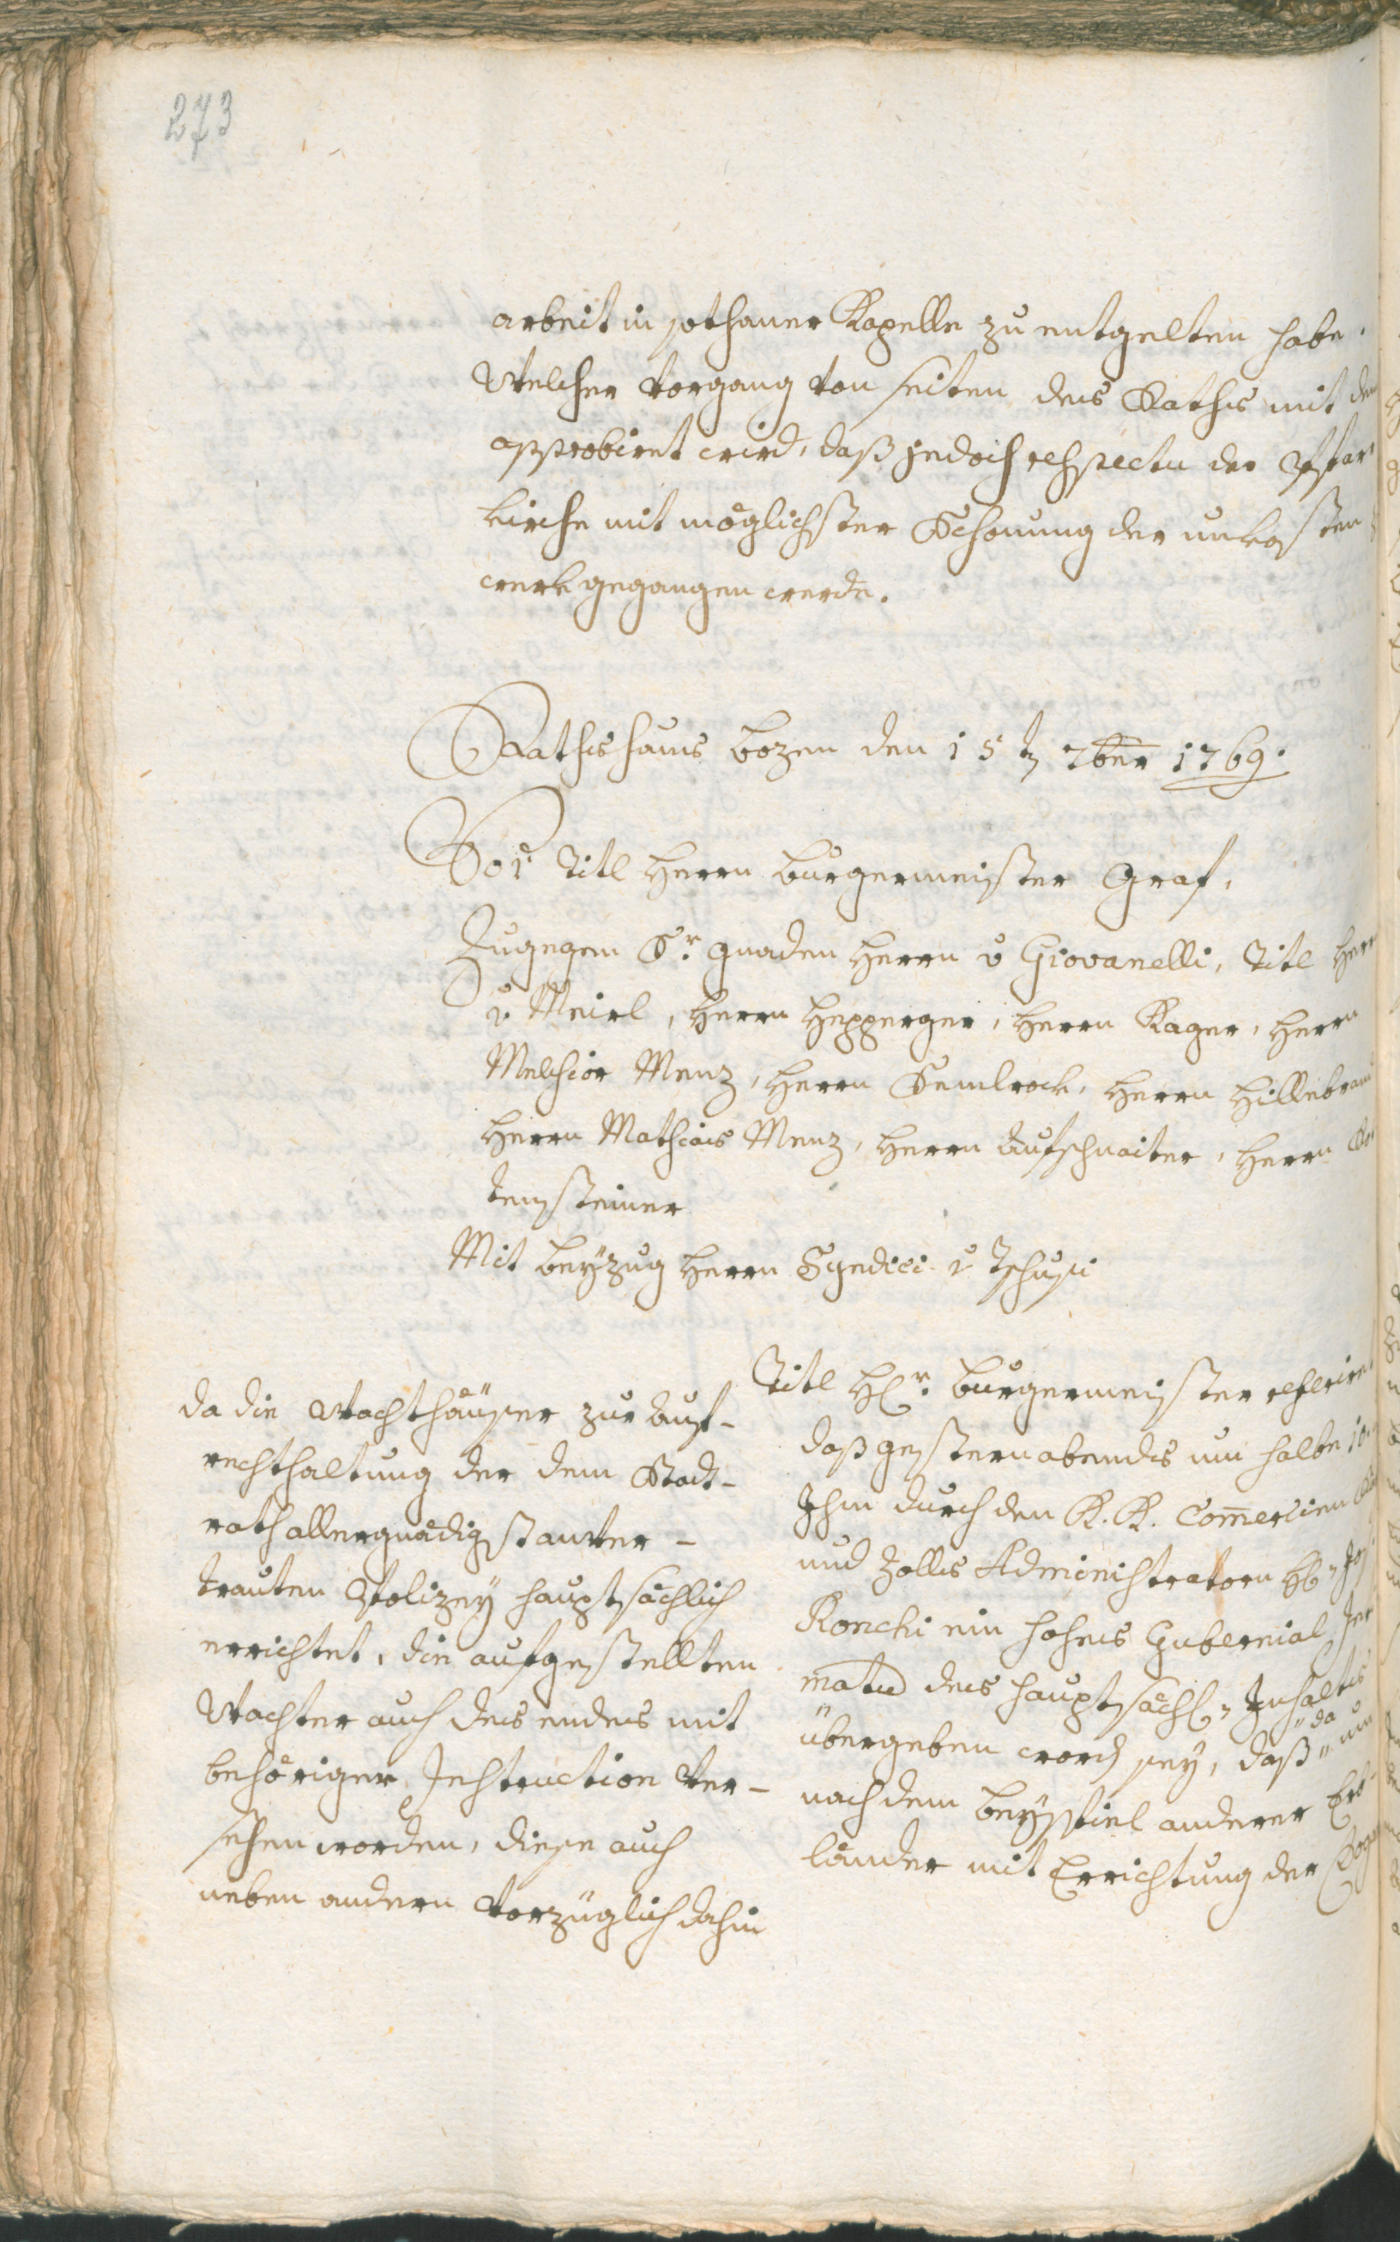 273
arbeit in sothaner Kapelle zu entgelten habe.
Welcher Vorgang von seiten des Raths mit dem
approbirt wird, daß jedoch respectu der Pfarr
kirche mit möglichster Schonung der unkosten
werk gegangen werde.
Rathshaus Bozen den 15t 7ber 1769.
Vor Titl Herrn Burgermeister Graf,
Zugegen Sr. gnaden Herrn v Giovanelli, Titl Herrn
v Meirl, Herrn Hepperger, Herrn Kager, Herrn
Melchior Menz, Herrn Semlrock, Herrn Hillebrand
Herrn Mathias Menz, Herrn Aufschnaiter, Herrn
tensteiner
Mit beyzug Herrn Syndici v Tschusi
da die Wachthäuser zur Auf-
rechthaltung der dem Stadt-
rath allergnädigst anver-
trauten Polizey hauptsächlich
errichtet, die aufgestellten
Wachter auch des endes mit
behöriger Instruction ver-
sehen worden, diese auch
neben andern vorzüglich dahin
Titl Hr. Burgermeister referiret
daß gestern abends um halbe 10
Ihm durch den K. K. Com̅ercien
und Zolls Administratorn H
Ronchi ein hohes Gubernial In
matud des hauptsächl. Inhaltes
übergeben word sey, daß "da
nach dem beyspiel anderer Erb-
länder mit Errichtung der